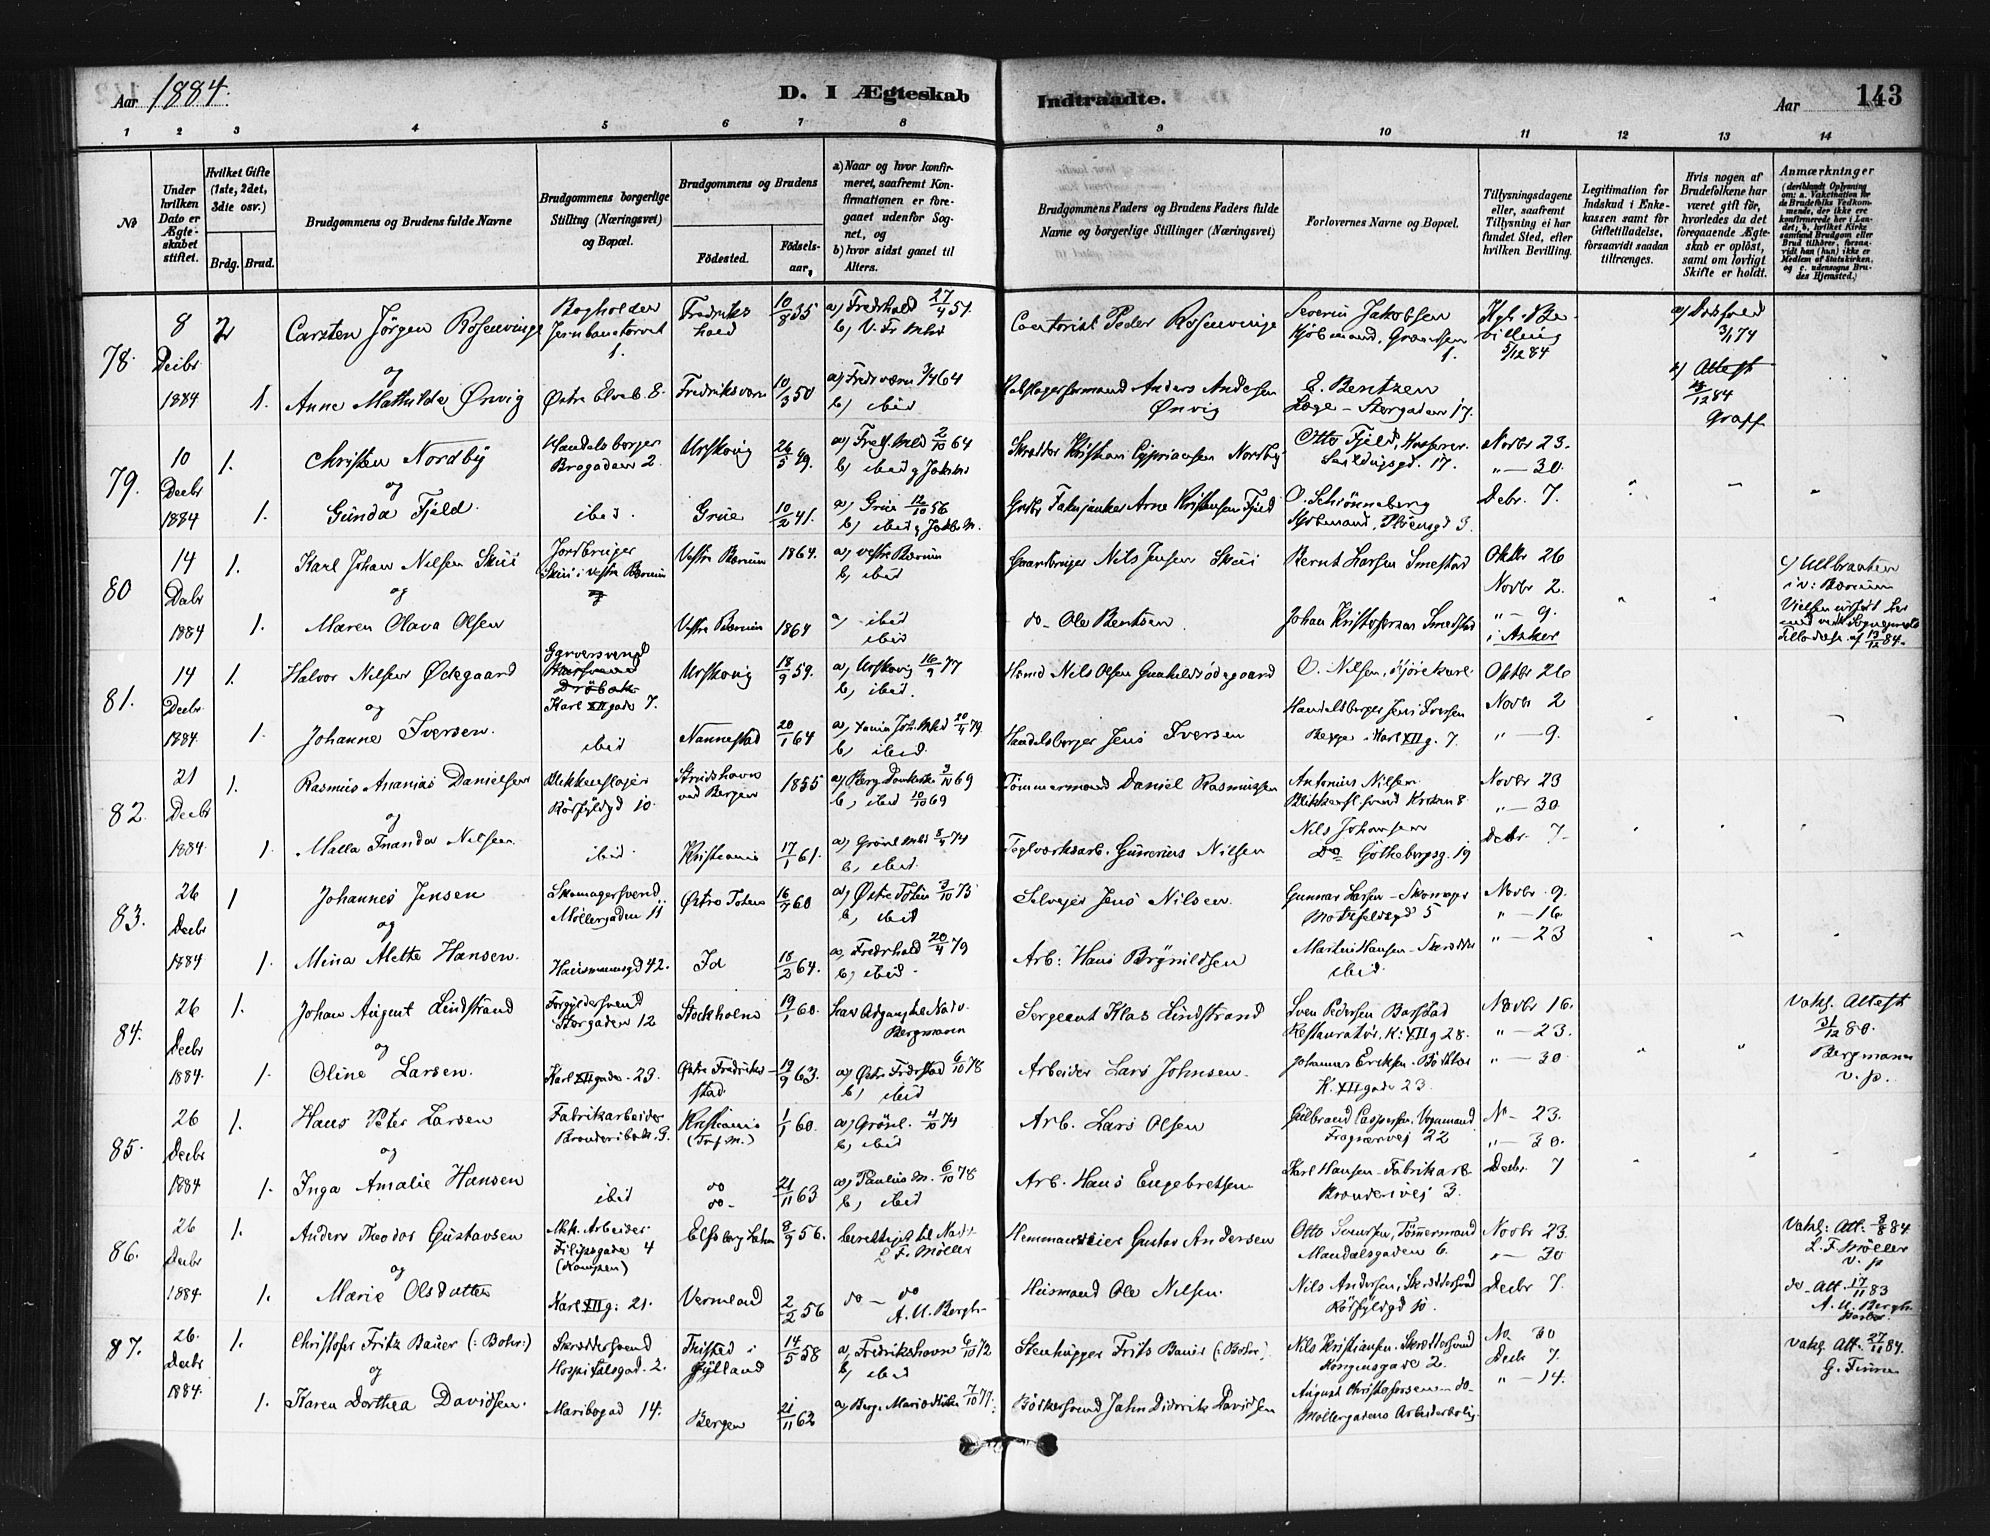 Aar 1884.
D. I Ægteskab
Indtraadte.
Aar
143
1 2 3 4 5 6 7 8 9 10 11 12 13 14
No
Under hvilken Dato er Ægteskabet stiftet.
Hvilket Gifte (1ste, 2det, 3die osv.)
Brdg. Brud.
Brudgommens og Brudens fulde Navne
Brudgommens borgerlige Stilling (Næringsvei) og Bopæl.
Brudgommens og Brudens
Fødested.
Fødsels-aar.
a) Naar og hvor konfirmeret, saafremt Konfirmationen er foregaaet udenfor Sognet, og
b) hvor sidst gaaet til Alters.
Brudgommens Faders og Brudens Faders fulde Navne og borgerlige Stillinger (Næringsvei)
Forlovernes Navne og Bopæl.
Tillysningsdagene eller, saafremt Tillysning ei har fundet Sted, efter hvilken Bevilling.
Legitimation for Indskud i Enkekassen samt for Giftetilladelse, forsaavidt saadan tiltrænges.
Hvis nogen af Brudefolkene har været gift før, hvorledes da det foregaaende Ægteskab er opløst, samt om lovligt Skifte er holdt.
Anmærkninger
(deriblandt Oplysning om: a. Vakcination for de Brudefolks Vedkommende, der ikke ere konfirmerede her i Landet; b. hvilket Kirkesamfund Brudgom eller Brud tilhører, forsaavidt han (hun) ikke er Medlem af Statskirken, og c. udensogns Brudes Hjemsted.)
78. 8 Decbr 1884 2 Carsten Jörgen Rosenvinge Bogholder Jernbanetorvet 1. Fredrikshald 10/8 35 a) Fredrhald 27/4 51. b) V. Fr Mhd Peder Rosenvinge Severin Jakobsen Kjøbmand, Grændsen 1. Kgl. Bevilling 5/12 84 3/1 74
og
1. Anne Mathilde Ørvig Østre Elveb. 8. Fredriksværn 10/3 50 a) Fredrværn 64 b) ibid Anders Andersen Ørvig E. Bentzen Læge - Storgaden 17. Attest 12 84 Graff
79. 10 Decbr 1884 1. Christen Nordby Handelsborger Brogaden 2. Urskoug 26/5 49. 2/10 64 b) ibid Skrædder Kristian Cypriansen Nordby Otto Fjeld, 17. Novbr 23. " - 30.
og
1. Gunda Fjeld. ibid. Grue 10/2 41. a) Grue 12/10 56 b) ibid Arne Kristensen Fjeld O. Schiönneberg Kjøbmand, Pløensgd 3. Debr. 7.
80 14 Dcbr 1884 1. Karl Johan Nilsen Skui Jordbruger Skui i Vestre Bærum Vestre Bærum 1864. a) vestre Bærum b) ibid Gaardbruger Nils Jensen Skui Bernt Larsen Smestad Oktbr 26 Novbr 2.
og
1. Maren Olava Olsen Vestre Bærum 1864 a) ibid ibid do - Ole Berntsen Johan Kristofersen Smedstad " - 9. i Asker i v: Bærum
81. 14 Decbr 1884. 1. Halvor Nilsen Ødegaard Garversvend Karl XII gade 7. Urskoug 18/9 59. a) Urskoug 16/9 77 b) ibid. Nils Olsen Gunhildsødegaard O. Nilsen, Oktbr 26 Novbr 2
og
1. Johanne Iversen. ibid Nannestad 20/1 64 20/4 79. b) ibid. Handelsborger Jens Iversen Handelsborger Jens Iversen Karl XII g. 7. " - 9.
82. 21 Decbr 1884 1. Rasmus Ananias Danielsen Blikkenslager Rörfyldgd 10. ved Bergen 1855 a) Berg Domkirke 3/10 69 b) ibid 10/10 69 Tömmermand Daniel Rasmussen Antonius Nilsen Novbr 23 " - 30
og
1. Malla Nilsen ibid. Kristiania 17/1 61. a) Grönl. 74 b) ibid. Teglværksarb. Gunerius Nilsen Nils Johansen Götheborgsg. 19 Decbr. 7
83. 26 Decbr 1884 1 Johannes Jensen Skomagersvend Møllergaden 11 Østre Toten 16/7 60 a) Østre Toten 3/10 75 b) ibid Selveier Jens Nilsen. Gunnar Larsen - Skomager Motzfeldsgd 5 Novbr. 9. " - 16.
og
1. Mina Mette Hansen. Hausmannsgd 42. Id 18/2 64. a) Fredrhald 20/4 79 b) ibid. Arb: Hans Brynildsen Martin Hansen - Skrædder ibid. " - 23
84. 26 Decbr 1884. 1. Johan August Lindstrand Forgyldersvend Storgaden 12 Stockholm 19/1 60. har Adgang til Nadv. Bergmann Sergeant Klas Lindstrand Sven Pedersen Restauratör, K. XII g 28. Novbr 16. " - 23. Vakc. Attest 31/12 80. Bergmann v. p.
og
1. Oline Larsen. Karl XII gade 23. Østre Fredrikstad 12/9 63. a) Østre Fredrstad 6/10 78 b) ibid Arbeider Lars Johnsen. Johannes Eriksen - K. XII gade 23. " - 30
85. 26 Decbr 1884 1. Hans Peter Larsen Fabrikarbeider 9. Kristiania 1/1 60. a) Grönl. 4/10 74 b) ibid Arb. Lars Olsen Gulbrand Caspersen, Vognmand Frognervej 22 No - 23. " - 30.
og
1. Inga Amalie Hansen ibid do do - 21/11 63 a) Paulus M. 6/10 78 b) ibid Arb. Hans Engebretsen Karl Hansen - Fabrikarb 3. Decbr. 7
86. 26 Decbr 1884 1. Anders Teodor Gustavsen Arbeider Filipsgade 4 (Kampen) 8/9 56. berettiget til Nadv. L. F. Möller Gustav Andersen Otto Tömmermand Mandalsgaden 6. Novbr 23. " - 30 Vakc: Att. 8/8 84 L. F. Möller v. p
og
1. Marie Olsdatter Karl XII g: 21. Vermland 2/2 56 do - do A. U. Bergh - Husmand Ole Nilsen. Nils Andersen, Skræddersvend Rörfyldgd 10. Decbr 7. do - Att. 17/11 83 A. U. Bergh
87. 26. Decbr 1884. 1. Christofer Fritz Bauer (: Bohr:) Skræddersvend Hospitalsgad - 2. i Jylland 14/5 58 a) Fredrikshavn 6/10 72 b) ibid Stenhugger Frits Bauer (: Bohr:). Nils Kristiansen. Skræddersvend 2. No 30 Decb 7. Vakc. Att. 27/11 84. G.
og
1. Karen Dorthea Davidsen. Maribogad 14. Bergen 21/11 62 7/10 77. Bødkersvend John Didrik Davidsen August Christofersen - do - Møllergadens Arbeiderbolig. " - 14.